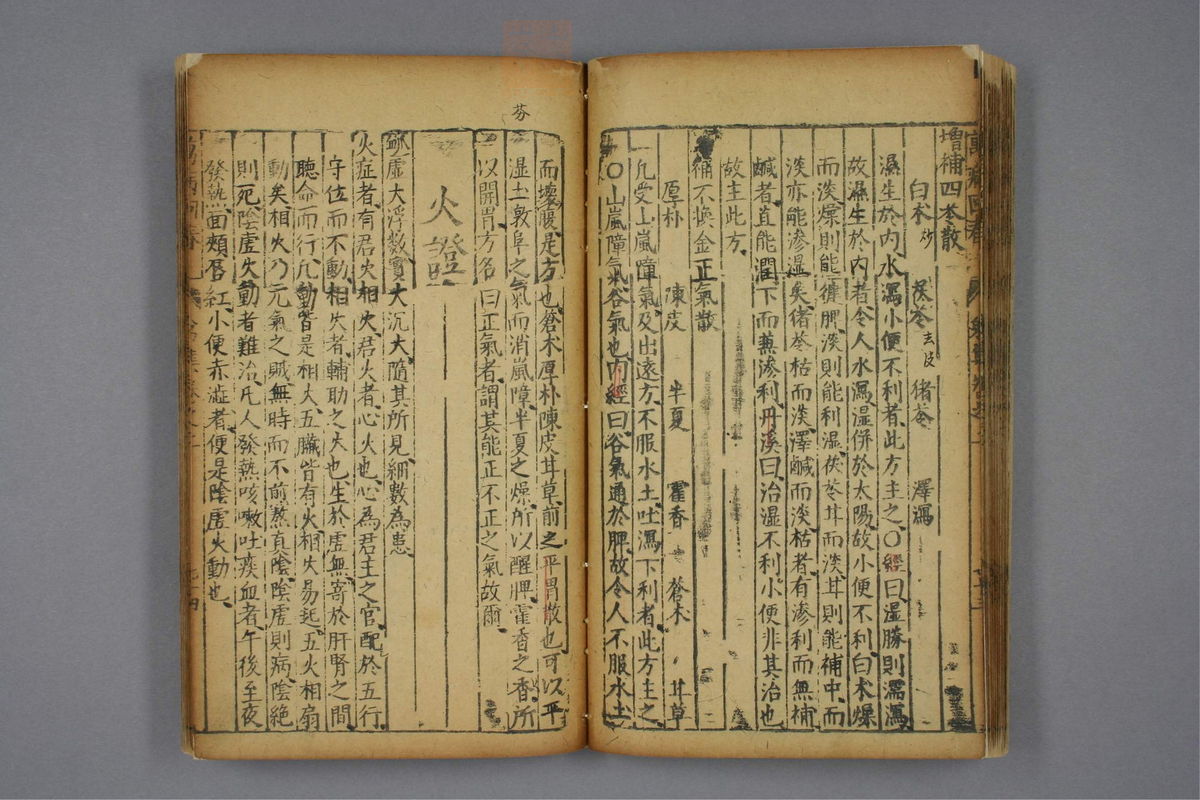 增補四本散
白朮炒 茯苓去皮 猪苓 澤瀉
濕生於內水瀉小便不利者此方主之○經曰濕勝則濡瀉
故濕生於內者令人水瀉濕併於太陽故小便不利白朮燥
而淡燥則能健脾淡則能利濕茯苓甘而淡甘則能補中而
淡亦能滲湿矣猪苓枯而淡澤鹹而淡枯者有滲利而無補
鹹者直能潤下而蒹滲利丹溪曰治湿不利小便非其治也
故主此方
補不換金正氣散
厚朴 陳皮 半夏 藿香 蒼朮 甘草
一凡受山嵐瘴氣及出遠方不服水土吐瀉下利者此方主之
○山嵐瘴氣谷氣也內經曰谷氣通於脾故令人不服水土
芬
而壞腹是方也蒼朮厚朴陳皮甘草前之平胃散也可以平
湿土敦阜之氣而消嵐瘴半夏之燥所以醒脾藿香之香所
以開胃方名曰正氣者謂其能正不正之氣故爾
火證
脉虛大浮數實大沉大隨其所見細數為患
火症者有君火相火君火者心火也心為君主之官配於五行
守位而不動相火者輔助之火也生於虛無寄於肝腎之間
聽命而行凡動皆是相火五臟皆有火相火易起五火相扇
動矣相火乃元氣之賊無時而不前熬真陰陰虛則病陰絕
則死陰虛火動者難治凡人發熱咳嗽吐痰血者午後至夜
發熱面頰唇紅小便赤澁者便是陰虛火動也